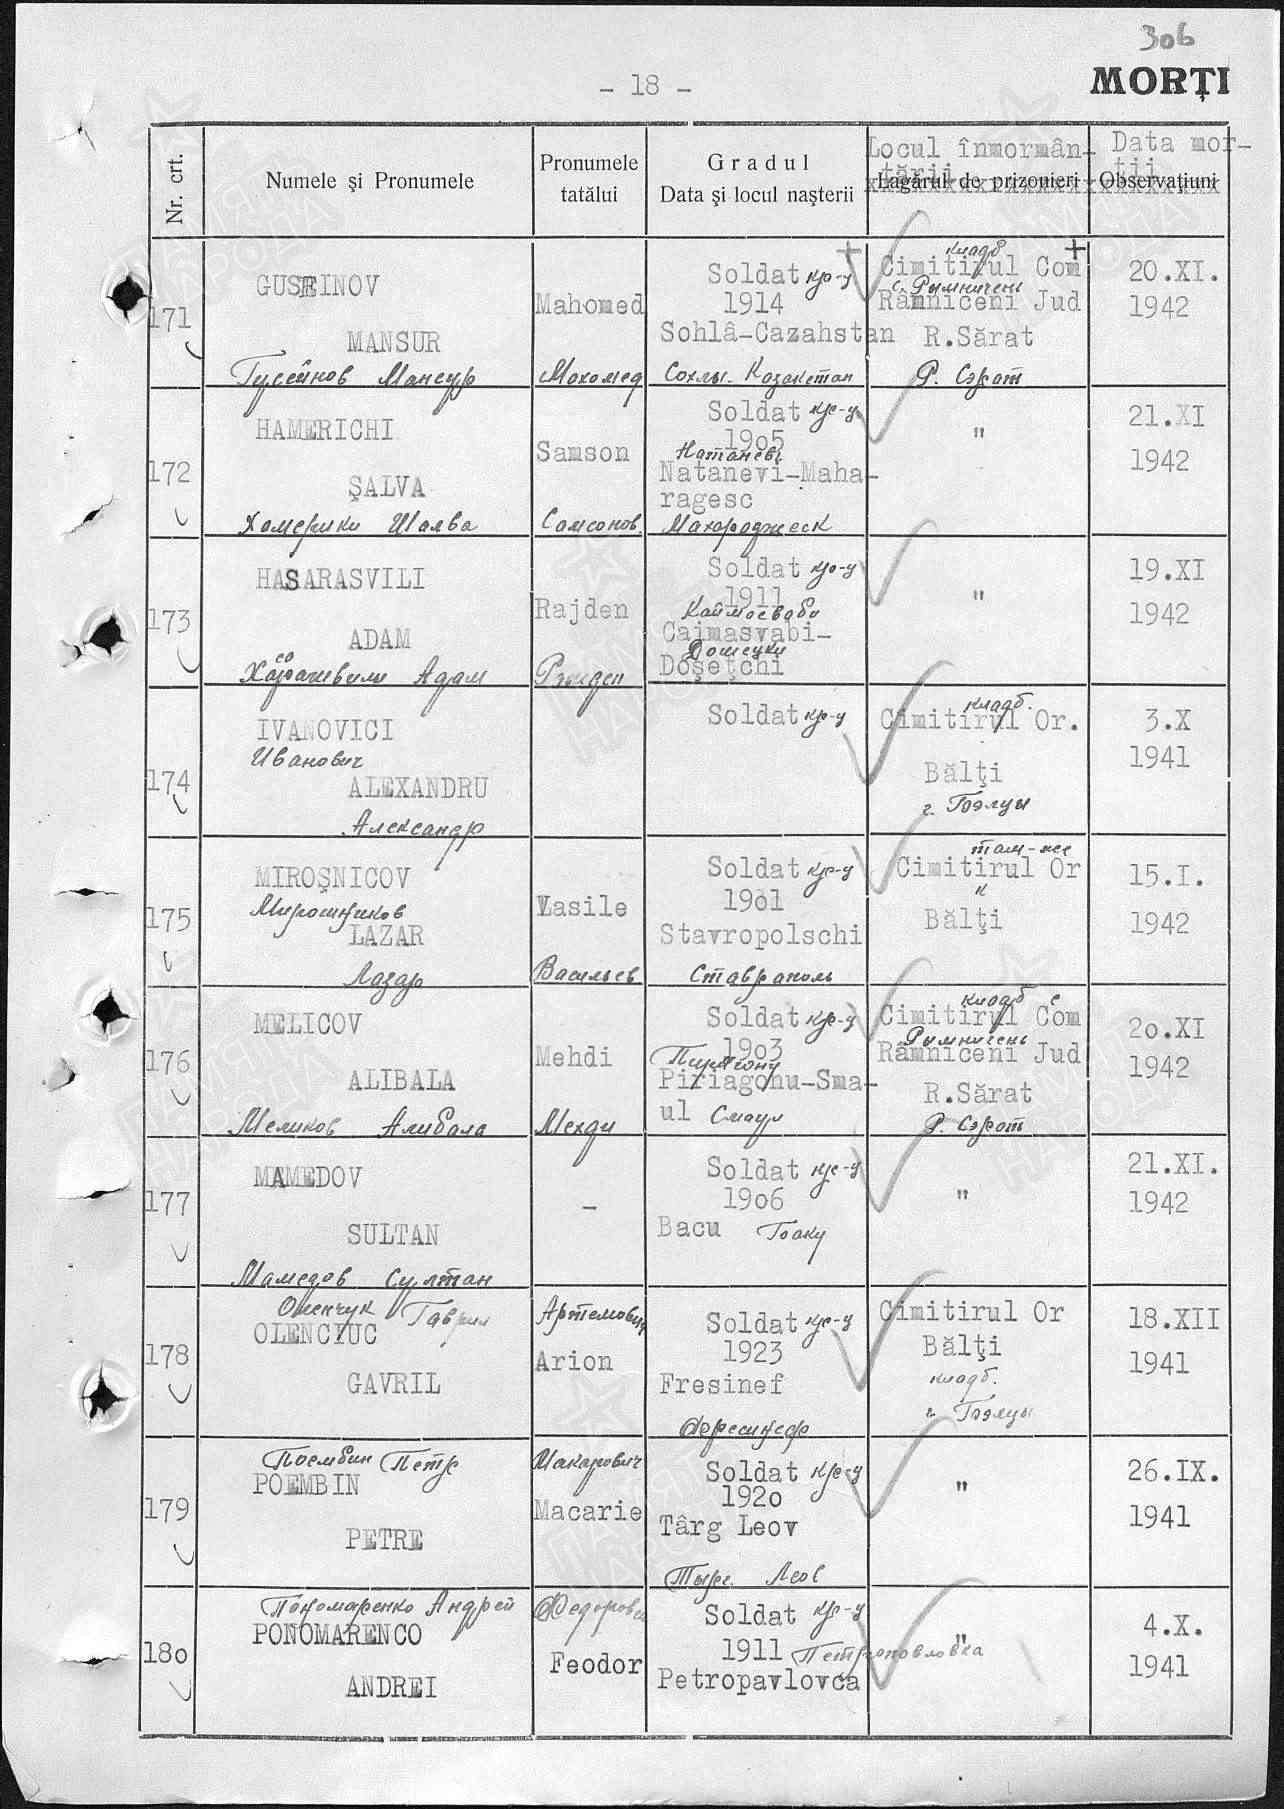 306
- 18 -
MORŢI
Nr. crt.
Numele şi Pronumele
Pronumele tatălui
Gradul
Data şi locul naşterii
Locul înmormân-
tării
Lagărul de prizonieri
Data mor-
ţii
Observaţiuni
171
GUSEINOV
MANSUR
Гусейнов Мансур
Mahomed
Махомед
Soldat кр-ц
1914
Sohlâ-Cazahstan
Сохлы-Казахстан
кладб
Cimitirul Com
с. Рымничень
Râmniceni Jud
R.Sărat
Р. Сэрат
20.XI.
1942
172
HAMERICHI
ŞALVA
Хомерики Шалва
Samson
Самсонов.
Soldat кр-ц
19o5
Натаневи
Natanevi-Maha-
ragesc
Махараджеск
"
21.XI
1942
173
HASARASVILI
ADAM
са
Харашвили Адам
Rajden
Рэжден
Soldat кр-ц
1911
Каймасваби
Caimasvabi-
Дошецки
Doşeţchi
"
19.XI
1942
174
IVANOVICI
Иванович
ALEXANDRU
Александр
Soldat кр-ц
кладб.
Cimitirul Or.
Bălţi
г. Бэлцы
3.X
1941
175
MIROŞNICOV
Мирошников
LAZAR
Лазар
Vasile
Васильев
Soldat кр-ц
19o1
Stavropolschi
Ставрополь
там-же
Cimitirul Or
"
Bălţi
15.I.
1942
176
MELICOV
ALIBALA
Меликов Алибала
Mehdi
Мехди
Soldat кр-ц
19o3
Пириагону
Piriagonu-Sma-
ul Смаул
кладб с
Cimitirul Com
Рымничень
Râmniceni Jud
R.Sărat
Р. Сэрат
2o.XI
1942
177
MAMEDOV
SULTAN
Мамедов Султан
-
Soldat кр-ц
19o6
Bacu Баку
"
21.XI.
1942
178
Оленчук Гаврил
OLENCIUC
GAVRIL
Артемович
Arion
Soldat кр-ц
1923
Fresinef
Фресинеф
Cimitirul Or
Bălţi
кладб.
г. Бэлцы
18.XII
1941
179
Поембин Петр
POEMBIN
PETRE
Макарович
Macarie
Soldat кр-ц
192o
Târg Leov
Тырг Леов
"
26.IX.
1941
18o
Пономаренко Андрей
PONOMARENCO
ANDREI
Feodor
Soldat кр-ц
1911 Петропавловка
Petropavlovca
"
4.X.
1941